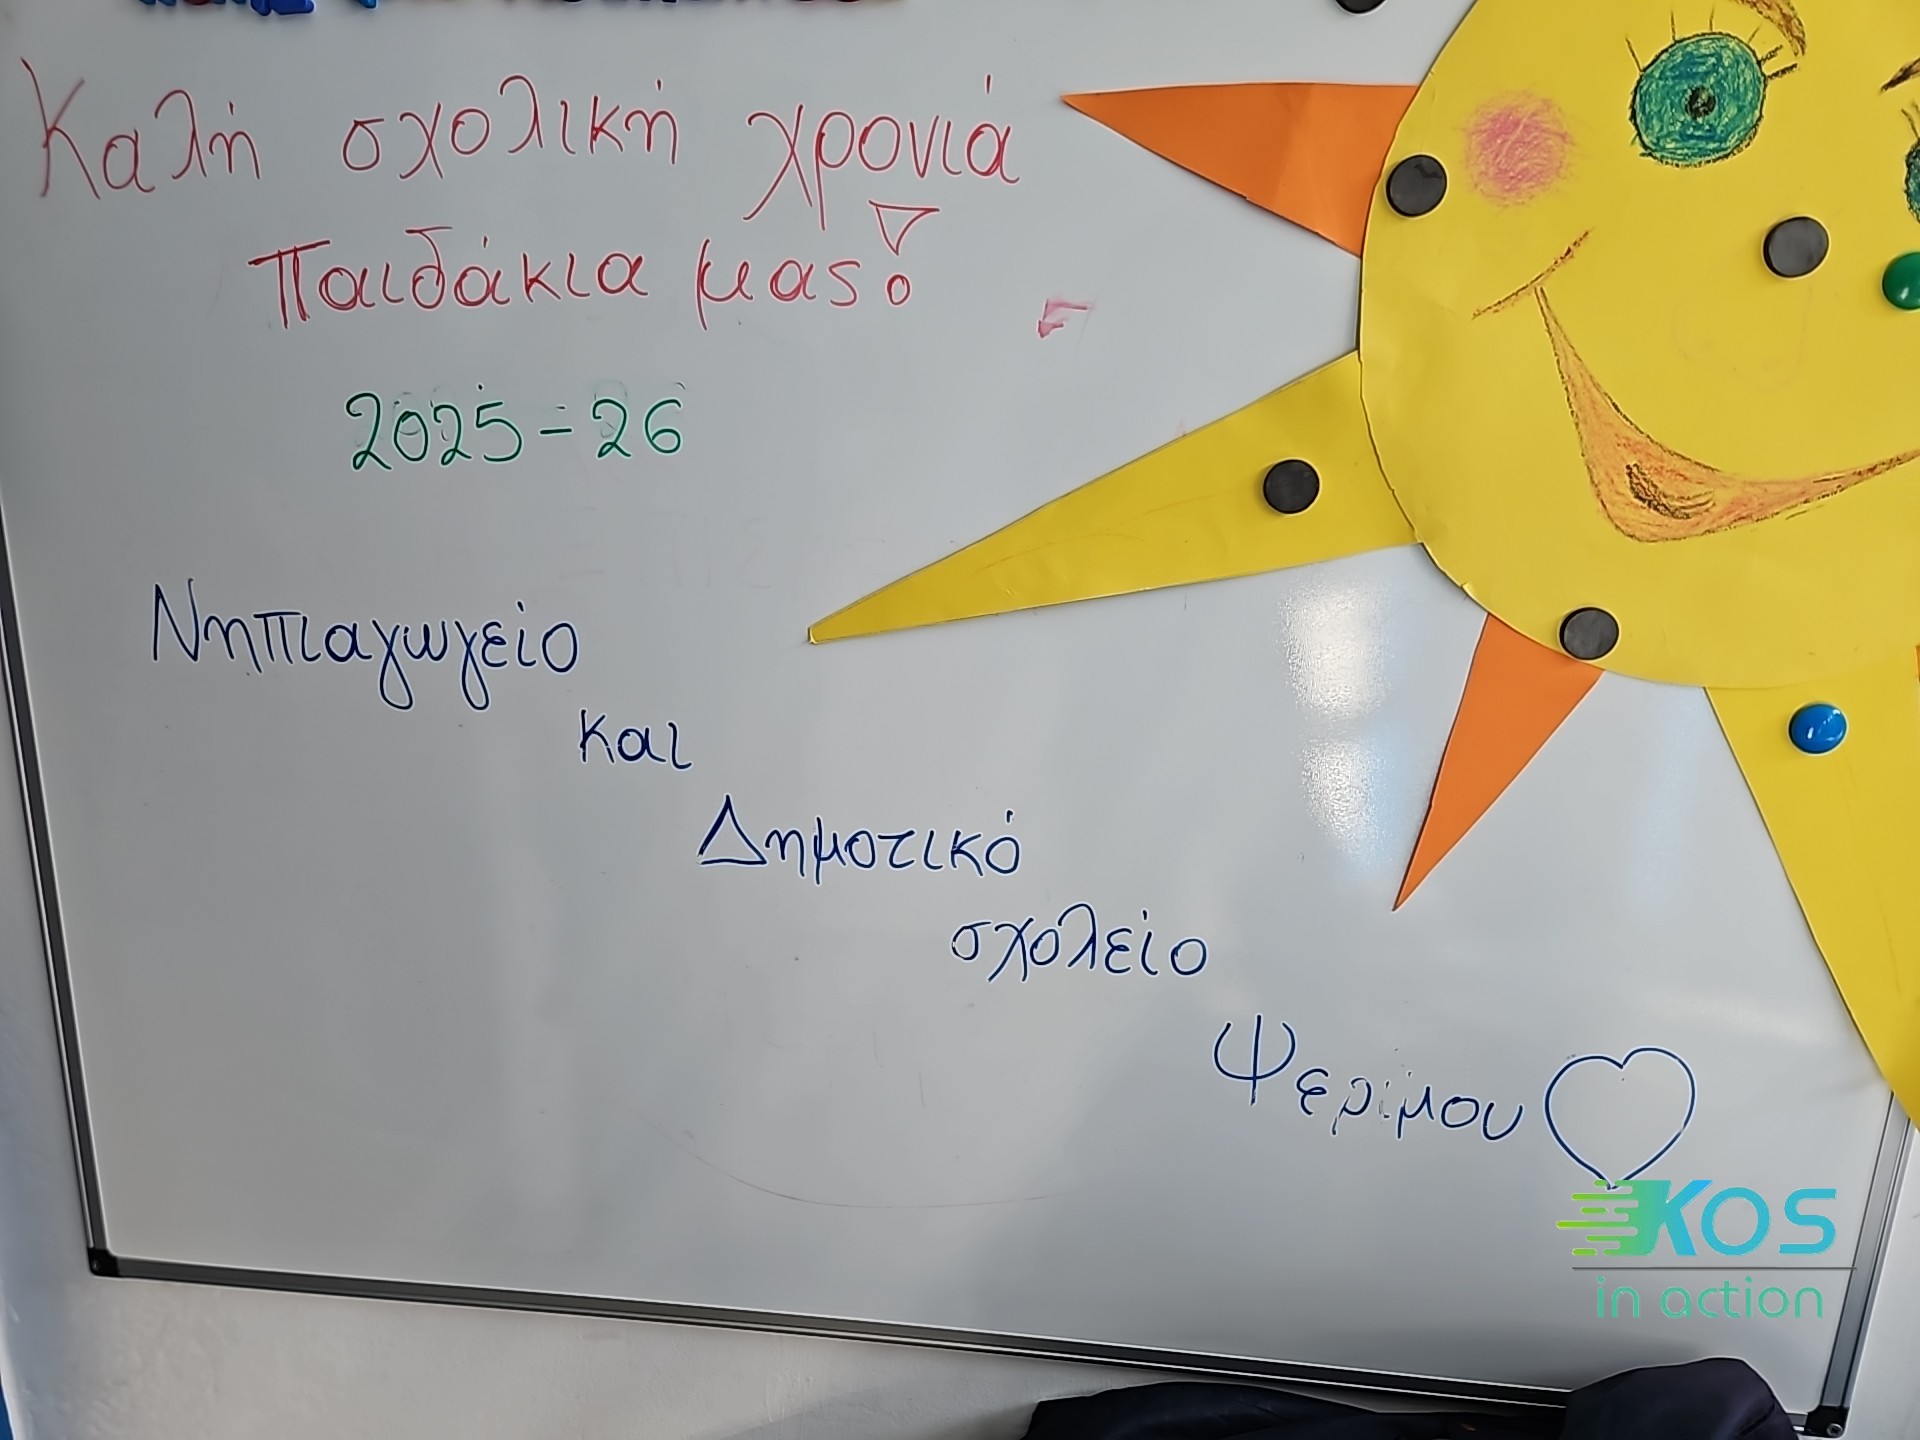 Καλή σχολική χρονιά
παιδάκια μας!
2025-26
Νηπιαγωγείο
και
Δημοτικό
σχολείο
Ψερίμου
KOS
in action